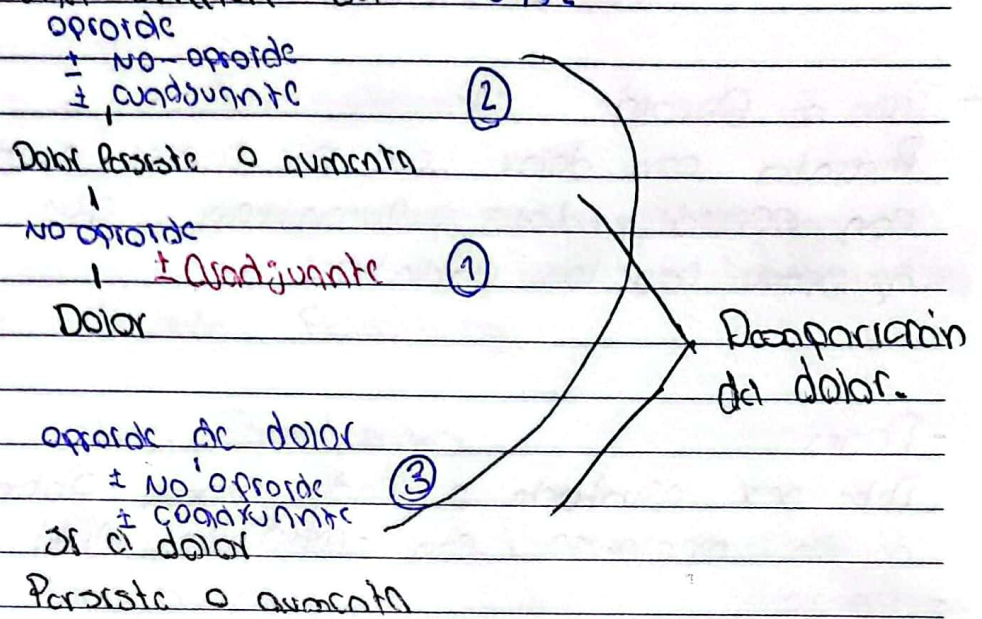 opioide
± NO-opioide
± cuadyuvante
②
Dolor Persiste o aumenta
No opioide
± Coadjuvante
①
Dolor
Desaparición
del dolor.
opioide de dolor
± No opioide
③
± coadyuvante
si el dolor
Persiste o aumenta